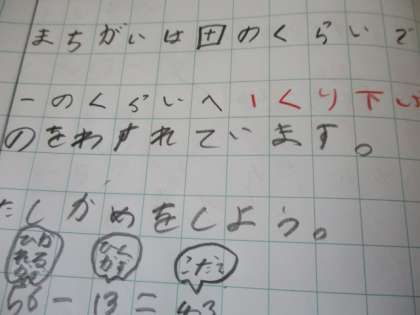 まちがいは十のくらいで
一のくらいへ1くり下げ
のをわすれています。
たしかめをしよう。
ひかれる数 ひくかず こたえ
56-13=43